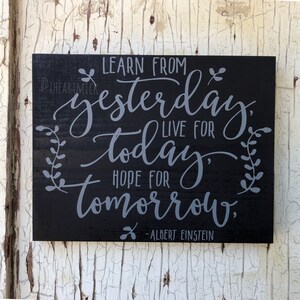 LEARN FROM
yesterday,
LIVE FOR
today,
HOPE FOR
tomorrow,
-ALBERT EINSTEIN